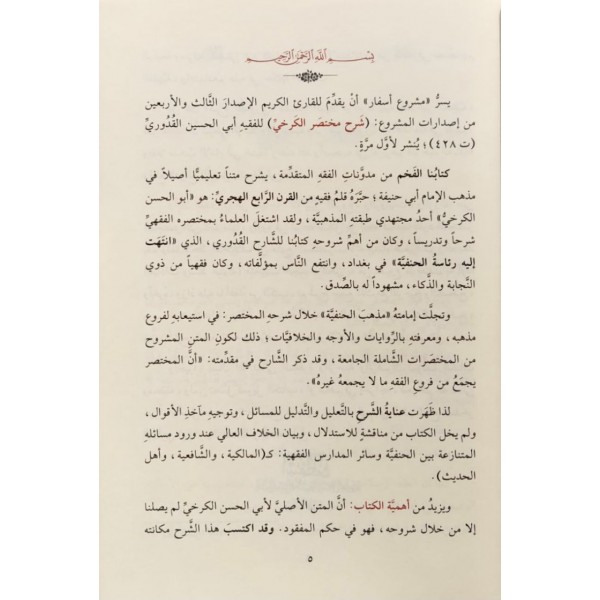 بِسْمِ اللَّهِ الرَّحْمَنِ الرَّحِيمِ
يسرُّ «مشروع أسفار» أنْ يقدِّمَ للقارئ الكريم الإصدارَ الثَّالث والأربعين
من إصدارات المشروع: (شَرح مختصَر الكَرخيِّ) للفقيهِ أبي الحسين القُدُوريِّ
(ت ٤٢٨)؛ يُنشر لأوَّل مرَّةٍ.
كتابُنا الفَخم من مدوَّناتِ الفقهِ المتقدِّمة، يشرح متناً تعليميًّا أصيلاً في
مذهب الإمام أبي حنيفة؛ حبَّرَهُ قلمُ فقيهٍ من القرن الرَّابع الهجريِّ: هو «أبو الحسن
الكرخيُّ» أحدُ مجتهدي طبقتهِ المذهبيَّة، ولقد اشتغلَ العلماءُ بمختصره الفقهيِّ
شرحاً وتدريساً، وكان من أهمِّ شروحهِ كتابُنا للشَّارح القُدُوري، الذي «انتَهَت
إليه رئاسةُ الحنفيَّة» في بغداد، وانتفع النَّاس بمؤلَّفاته، وكان فقهياً من ذوي
النَّجابة والذَّكاء، مشهوداً له بالصِّدق.
وتجلَّت إمامتهُ «مذهبَ الحنفيَّة» خلال شرحهِ المختصر: في استيعابهِ لفروع
مذهبه، ومعرفتهِ بالرِّوايات والأوجه والخلافيَّات؛ ذلك لكونِ المتن المشروح
من المختصَرات الشَّاملة الجامعة، وقد ذكر الشَّارح في مقدِّمته: «أنَّ المختصر
يجمَعُ من فروعِ الفقهِ ما لا يجمعهُ غيرهُ».
لذا ظَهَرت عنايةُ الشَّرحِ بالتَّعليل والتَّدليل للمسائل، وتوجيهِ مآخذِ الأقوال،
ولم يخل الكتاب من مناقشةٍ للاستدلال، وبيان الخلاف العالي عند ورود مسائلهِ
المتنازعة بين الحنفيَّة وسائر المدارس الفقهية: كـ(المالكية، والشَّافعية، وأهل
الحديث).
ويزيدُ من أهميَّة الكتاب: أنَّ المتن الأصليَّ لأبي الحسن الكرخيِّ لم يصلنا
إلا من خلال شروحه، فهو في حكم المفقود. وقد اكتسبَ هذا الشَّرح مكانته
٥